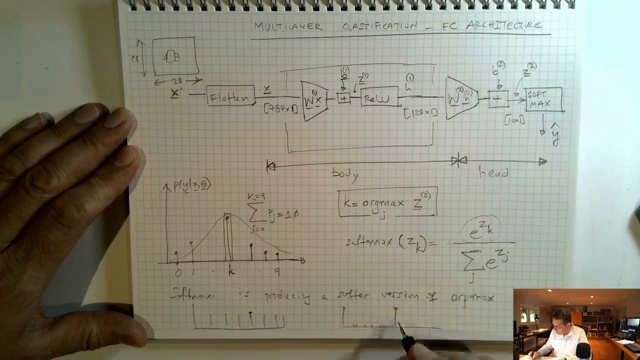 MULTILAYER CLASSIFICATION - FC ARCHITECTURE
28
28
X
Flatten
x
[784x1]
W⁽¹⁾x
b⁽¹⁾
+
z⁽¹⁾
ReLU
h⁽¹⁾
[128x1]
W⁽²⁾h⁽¹⁾
b⁽²⁾
+
z⁽²⁾
[10x1]
SOFT
MAX
ŷ
body
head
p(y|x,θ)
K=9
Σ Pj = 1.0
j=0
0 1 k 9
k = argmax z⁽²⁾
j
softmax (z_k) = e^{z_k} / Σ_j e^{z_j}
Softmax is producing a softer version of argmax